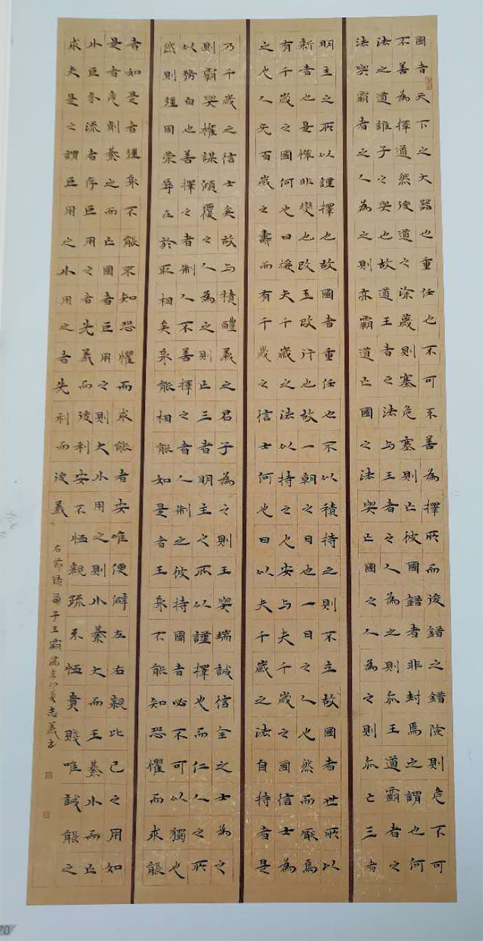 國者天下之大器也重任也不可不善為擇所而後錯之錯險則危不可
不善為擇道然後道之涂薉則塞危塞則亡彼國錯者非封焉之謂也何
法之道誰子之與也故道王者之法与王者之人為之則亦王道霸者之
法與霸者之人為之則亦霸道亡國之法與亡國之人為之則亦亡三者
明主之所以謹擇也故國者重任也不以積持之則不立故國者世所以
新者也是憚非變也改王改行也故一朝之日也一日之人也然而厭焉
有千歲之國何也曰援夫千歲之法以持之也安与夫千歲之國信士為
之也人无百歲之壽而有千歲之信士何也曰以夫千歲之法自持者是
乃千歲之信士矣故与積禮義之君子為之則王與端誠信全之士為之
則霸與權謀傾覆之人為之則亡三者明主之所以謹擇也而仁人之所
以務白也善擇之者制人不善擇之者人制之彼持國者必不可以獨也
然則彊固榮辱在於取相矣身能相能如是者王身不能知恐懼而求能
者如是者彊身不能不知恐懼而求能者安唯便僻左右親比己之用如
是者危削綦之而亡國者巨用之則大小用之則小綦大而王綦小而亡
小巨分流者存巨用之者先義而後利安不恤親疏不恤貴賤唯誠能之
求夫是之謂巨用之小用之者先利而後義
右節錄荀子王霸 志義書